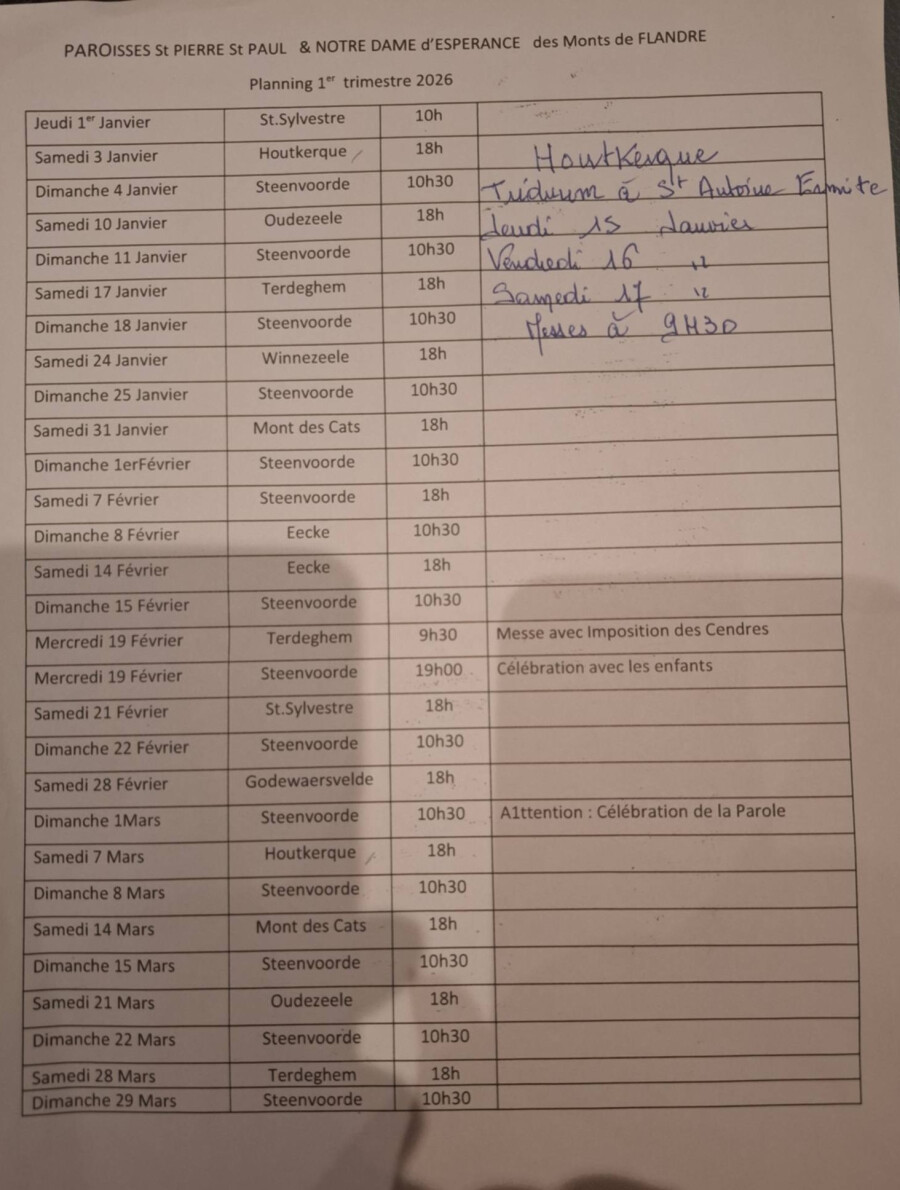 PAROISSES St PIERRE St PAUL & NOTRE DAME d'ESPERANCE des Monts de FLANDRE
Planning 1er trimestre 2026
Jeudi 1er Janvier St.Sylvestre 10h
Samedi 3 Janvier Houtkerque 18h Houtkerque
Dimanche 4 Janvier Steenvoorde 10h30 Triduum à St Antoine Ermite
Samedi 10 Janvier Oudezeele 18h Jeudi 15 Janvier
Dimanche 11 Janvier Steenvoorde 10h30 Vendredi 16 "
Samedi 17 Janvier Terdeghem 18h Samedi 17 "
Dimanche 18 Janvier Steenvoorde 10h30 Messes à 9H30
Samedi 24 Janvier Winnezeele 18h
Dimanche 25 Janvier Steenvoorde 10h30
Samedi 31 Janvier Mont des Cats 18h
Dimanche 1erFévrier Steenvoorde 10h30
Samedi 7 Février Steenvoorde 18h
Dimanche 8 Février Eecke 10h30
Samedi 14 Février Eecke 18h
Dimanche 15 Février Steenvoorde 10h30
Mercredi 19 Février Terdeghem 9h30 Messe avec Imposition des Cendres
Mercredi 19 Février Steenvoorde 19h00 Célébration avec les enfants
Samedi 21 Février St.Sylvestre 18h
Dimanche 22 Février Steenvoorde 10h30
Samedi 28 Février Godewaersvelde 18h
Dimanche 1Mars Steenvoorde 10h30 A1ttention : Célébration de la Parole
Samedi 7 Mars Houtkerque 18h
Dimanche 8 Mars Steenvoorde 10h30
Samedi 14 Mars Mont des Cats 18h
Dimanche 15 Mars Steenvoorde 10h30
Samedi 21 Mars Oudezeele 18h
Dimanche 22 Mars Steenvoorde 10h30
Samedi 28 Mars Terdeghem 18h
Dimanche 29 Mars Steenvoorde 10h30